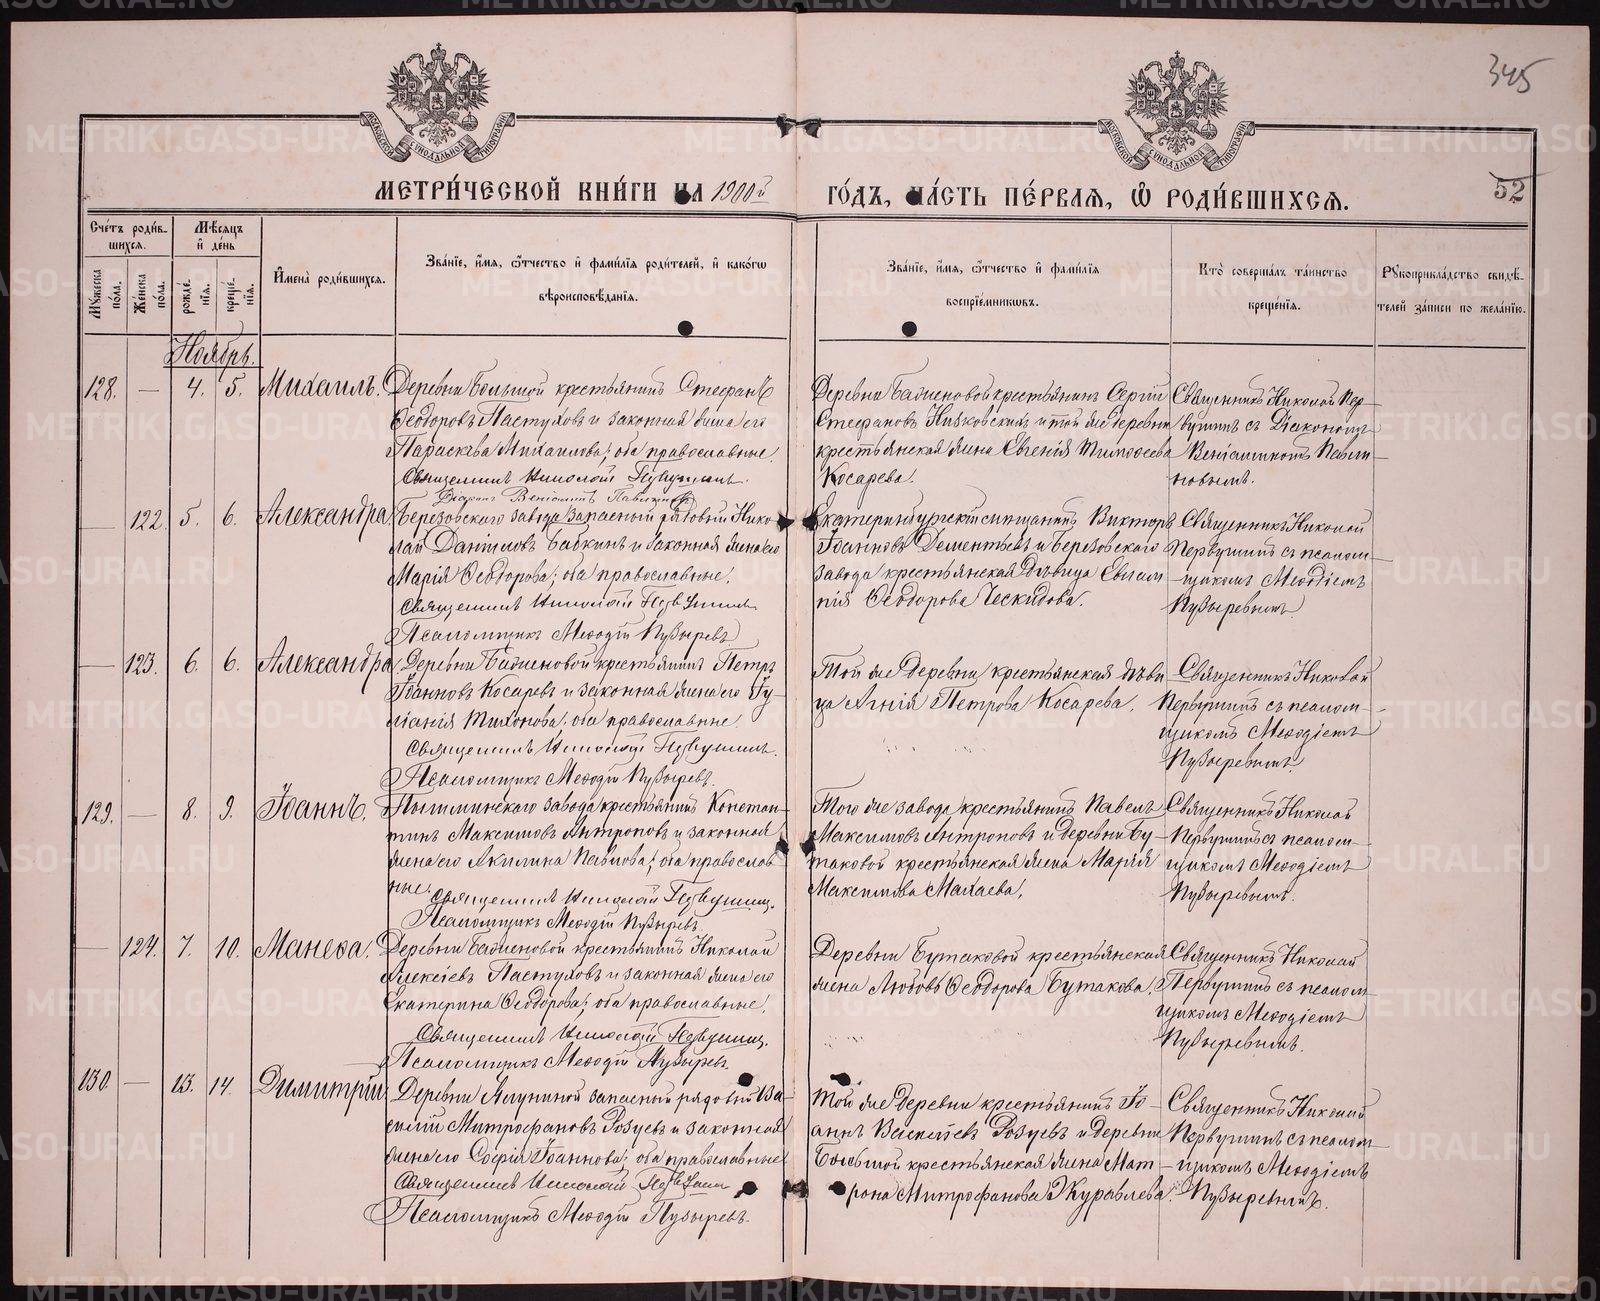 345
52
МОСКОВСКОЙ СѴНОДАЛЬНОЙ ТИПОГРАФІИ
МОСКОВСКОЙ СѴНОДАЛЬНОЙ ТИПОГРАФІИ
МЕТРИ́ЧЕСКОЙ КНИ́ГИ НА 1900й ГО́ДЪ, ЧА́СТЬ ПЕ́РВАЯ, Ѿ РОДИ́ВШИХСЯ.
Сче́тъ роди́в-
шихся.
Мѣсяцъ
и де́нь
Му́жеска по́ла.
Же́нска по́ла.
рожде́нїя.
креще́нїя.
Имена̀ роди́вшихся.
Зва́нїе, и́мя, ѻ́тчество и фами́лїя роди́телей, и како́гѡ
вѣроисповѣ́данїя.
Зва́нїе, и́мя, ѻ́тчество и фами́лїя
воспрїе́мникѡвъ.
Кто̀ соверша́лъ та́инство
креще́нїя.
Рꙋкоприкла́дство свидѣ́-
телей за́писи по жела́нїю.
Ноябрь.
128. — 4. 5. Михаилъ.
Деревни Большой крестьянинъ Стефанъ
Ѳеодоровъ Пастуховъ и законная жена его
Параскева Михаилова; оба православные.
Священникъ Николай Первушинъ.
Діаконъ Веніаминъ Павлиновъ
Деревни Баженовой крестьянинъ Сергій
Стефановъ Низковскихъ и той же деревни
крестьянская жена Евгенія Тимоѳеева
Косарева.
Священникъ Николай Пер-
вушинъ съ Діакономъ
Веніаминомъ Павли-
новымъ.
— 122. 5. 6. Александра
Березовскаго завода запасный рядовый Нико-
лай Даніиловъ Бабкинъ и законная жена его
Марія Ѳеодорова; оба православные.
Священникъ Николай Первушинъ
Псаломщикъ Меѳодій Пузыревъ
Екатеринбургскій мѣщанинъ Викторъ
Іоанновъ Дементьевъ и Березовскаго
завода крестьянская дѣвица Евген-
нія Ѳеодорова Ческидова.
Священникъ Николай
Первушинъ съ псалом-
щикомъ Меѳодіемъ
Пузыревымъ
— 123. 6. 6. Александра
Деревни Баженовой крестьянинъ Петръ
Іоанновъ Косаревъ и законная жена его Іу-
ліанія Тихонова; оба православные.
Священникъ Николай Первушинъ.
Псаломщикъ Меѳодій Пузыревъ.
Той же деревни крестьянская дѣви
ца Агнія Петрова Косарева.
Священникъ Николай
Первушинъ съ псалом-
щикомъ Меѳодіемъ
Пузыревымъ
129. — 8. 9. Іоаннъ.
Пышминскаго завода крестьянинъ Констан-
тинъ Максимовъ Антроповъ и законная
жена его Акилина Павлова; оба православ
ные. Священникъ Николай Первушинъ.
Псаломщикъ Меѳодій Пузыревъ
Того же завода крестьянинъ Павелъ
Максимовъ Антроповъ и деревни Бу-
таковой крестьянская жена Марія
Максимова Махаева.
Священникъ Николай
Первушинъ съ псалом-
щикомъ Меѳодіемъ
Пузыревымъ.
— 124. 7. 10. Манеѳа.
Деревни Баженовой крестьянинъ Николай
Алексіевъ Пастуховъ и законная жена его
Екатерина Ѳеодорова; оба православные.
Священникъ Николай Первушинъ.
Псаломщикъ Меѳодій Пузыревъ.
Деревни Бутаковой крестьянская
жена Любовь Ѳеодорова Бутакова.
Священникъ Николай
Первушинъ съ псалом-
щикомъ Меѳодіемъ
Пузыревымъ.
130. — 13. 14. Димитрій
Деревни Ялуниной запасный рядовый Ва-
силій Митрофановъ Розуевъ и законная
жена его Софія Іоаннова; оба православные
Священникъ Николай Первушинъ
Псаломщикъ Меѳодій Пузыревъ.
Той же деревни крестьянинъ Іо-
аннъ Васильевъ Розуевъ и деревни
Большой крестьянская жена Мат-
рона Митрофанова Журавлева.
Священникъ Николай
Первушинъ съ псалом-
щикомъ Меѳодіемъ
Пузыревымъ.
METRIKI.GASO-URAL.RU